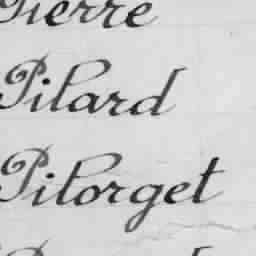 Pierre
Pilard
Pilorget